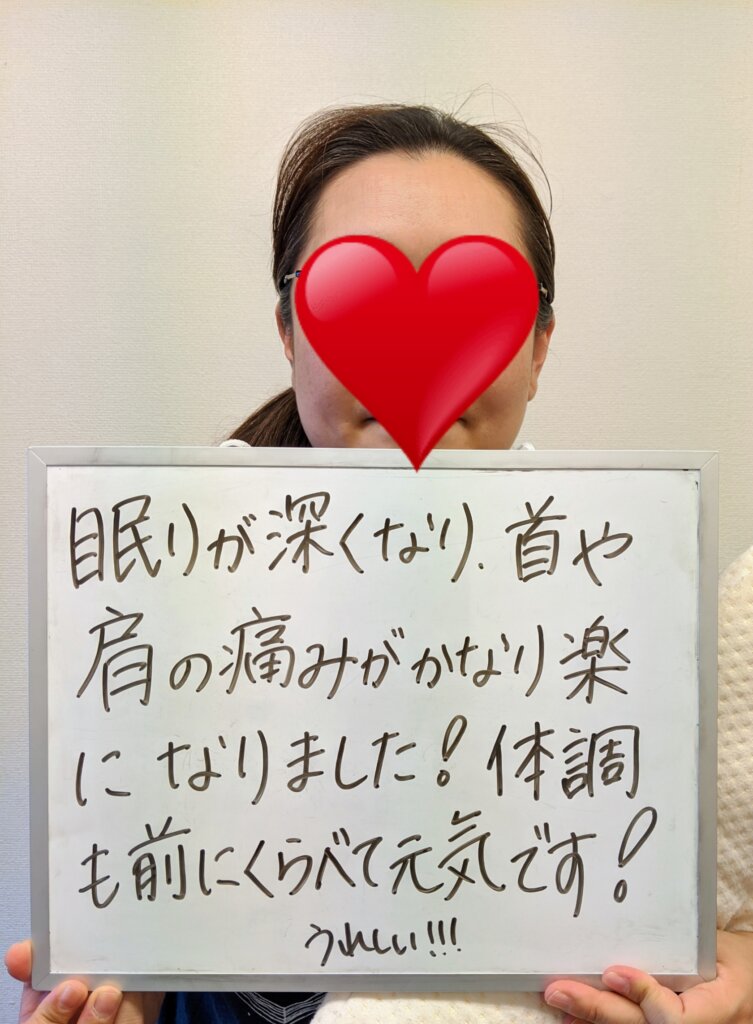 眠りが深くなり、首や
肩の痛みがかなり楽
になりました！体調
も前にくらべて元気です！
うれしい!!!